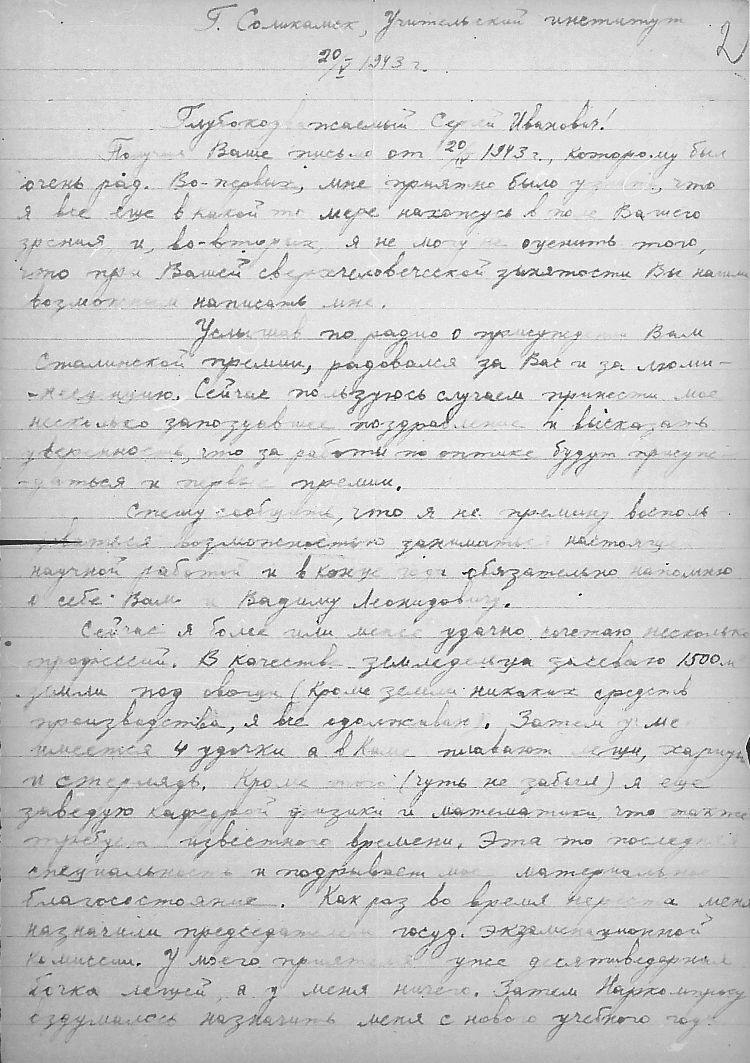 Г. Соликамск, Учительский институт
2
20/V 1943 г.
Глубокоуважаемый Сергей Иванович!
Получил Ваше письмо от 20/IV 1943 г., которому был
очень рад. Во-первых, мне приятно было узнать, что
я все еще в какой то мере нахожусь в поле Вашего
зрения и, во-вторых, я не могу не оценить того,
что при Вашей сверхчеловеческой занятости Вы нашли
возможным написать мне.
Услышав по радио о присуждении Вам
Сталинской премии, радовался за Вас и за люми-
-несценцию. Сейчас пользуюсь случаем принести мое
несколько запоздавшее поздравление и высказать
уверенность, что за работы по оптике будут присуж-
-даться и первые премии.
Спешу сообщить, что я не премину восполь-
зоваться возможностью заниматься настоящей
научной работой и в конце года обязательно напомню
о себе Вам и Вадиму Леонидовичу.
Сейчас я более или менее удачно сочетаю несколько
профессий. В качестве земледельца засеваю 1500 м
земли под овощи (кроме земли никаких средств
производства, я все одалживаю). Затем у меня
имеется 4 удочки а в Каме плавают лещи, хариузы
и стерлядь. Кроме того (чуть не забыл) я еще
заведую кафедрой физики и математики что также
требует известного времени. Эта то последняя
специальность и подрывает мое материальное
благосостояние. Как раз во время нереста меня
назначили председателем госуд. экзаменационной
комиссии. У моего приятеля уже десятиведерная
бочка лещей, а у меня ничего. Затем Наркомпросу
вздумалось назначить меня с нового учебного года